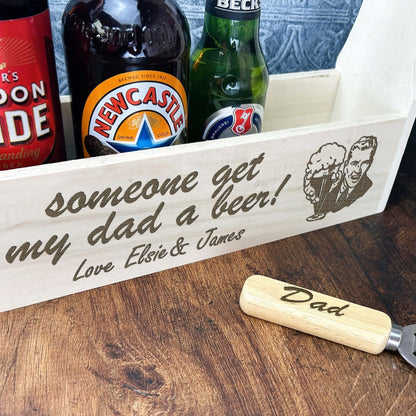 BECK
'S
DON
IDE
standing
BREWED SINCE 1927
NEWCASTLE
someone get
my dad a beer!
Love Elsie & James
Dad